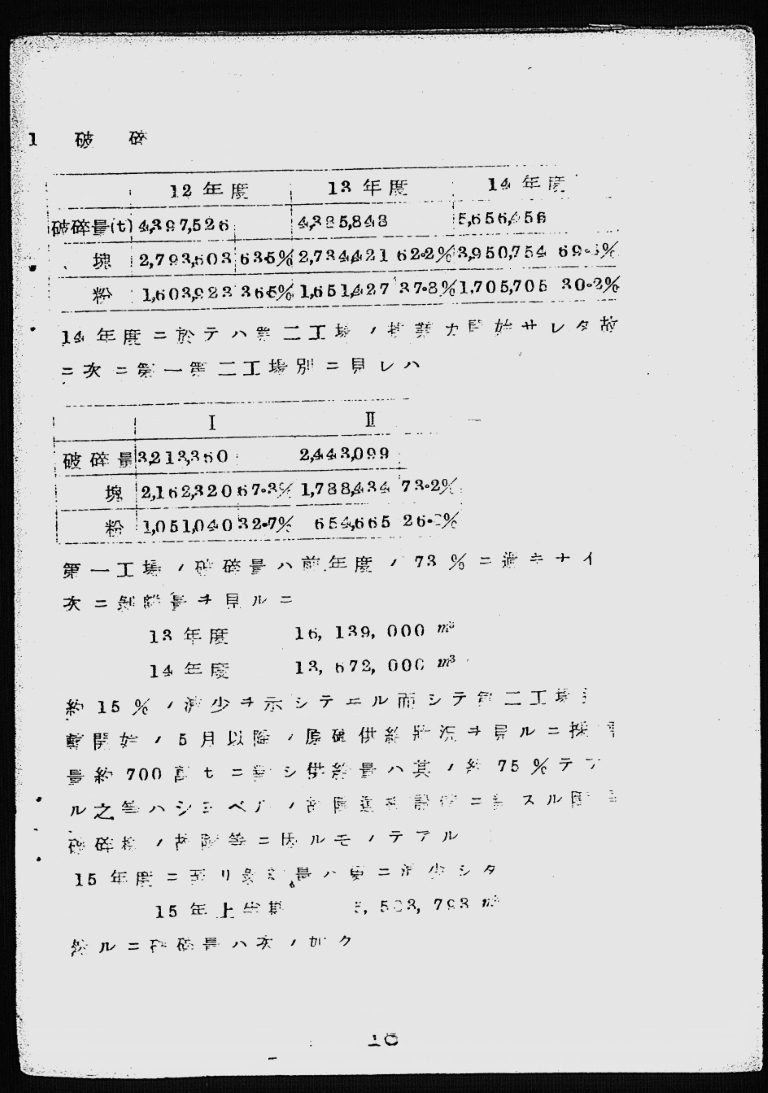 1 破 碎
12年度 13年度 14年度
破碎量(t) 4,397,526 4,385,848 5,656,456
塊 2,793,603 63.5% 2,734,421 62.2% 3,950,754 69.8%
粉 1,603,923 36.5% 1,651,427 37.8% 1,705,705 30.2%
14年度ニ於テハ第二工場ノ操業カ開始サレタ故
ニ次ニ第一第二工場別ニ見レハ
I II
破碎量 3,213,360 2,443,099
塊 2,162,320 67.3% 1,788,434 73.2%
粉 1,051,040 32.7% 654,665 26.%
第一工場ノ破碎量ハ前年度ノ73%ニ過キナイ
次ニ剝離量ヲ見ルニ
13年度 16,139,000 m³
14年度 13,672,000 m³
約15%ノ減少ヲ示シテヰル而シテ第二工場
轉開始ノ5月以降ノ原礦供給狀況ヲ見ルニ採
量約700萬tニ對シ供給量ハ其ノ約75%テア
ル之等ハショベルノ故障
破碎 ノ故障等ニ因ルモノテアル
15年度ニ至リ 量ハ更ニ減少シタ
15年上半期 5,503,793 m³
然ルニ破碎量ハ次ノ如ク
16